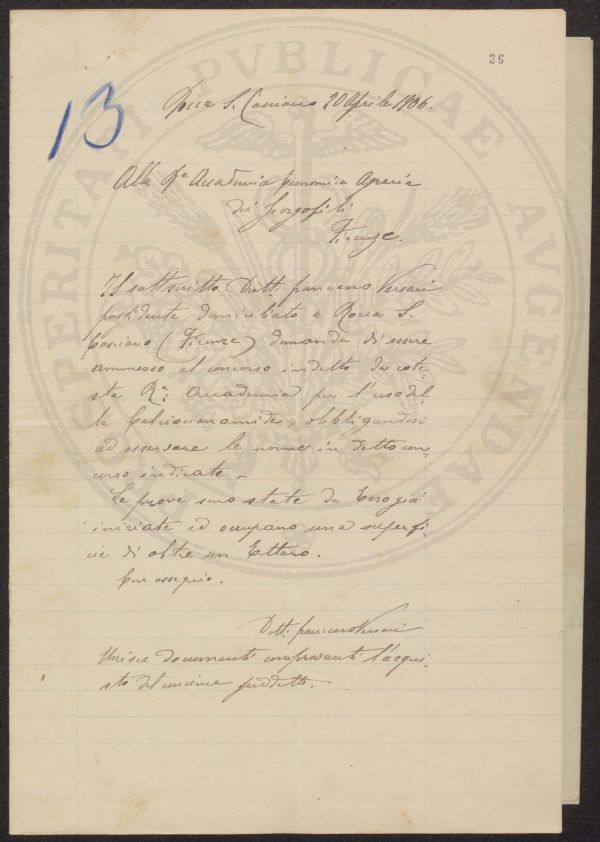 36
13
Rocca S. Casciano 20 Aprile 1906.
Alla Rª Accademia Economica Agraria
dei Georgofili
Firenze.
Il sottoscritto Dott: Francesco Versari
possidente domiciliato a Rocca S.
Casciano (Firenze) domanda di essere
ammesso al concorso indetto da cote-
sta Rª: Accademia per l'uso del-
la Calciocianamide, obbligandosi
ad osservare le norme in detto con-
corso indicate –
Le prove sono state da Esso già
iniziate ed occupano una superfi-
cie di oltre un Ettaro.
Con ossequio.
Dott: Francesco Versari
Unisce documenti comprovanti l'acqui-
sto del concime suddetto.
PROSPERITATI PVBLICAE AVGENDAE